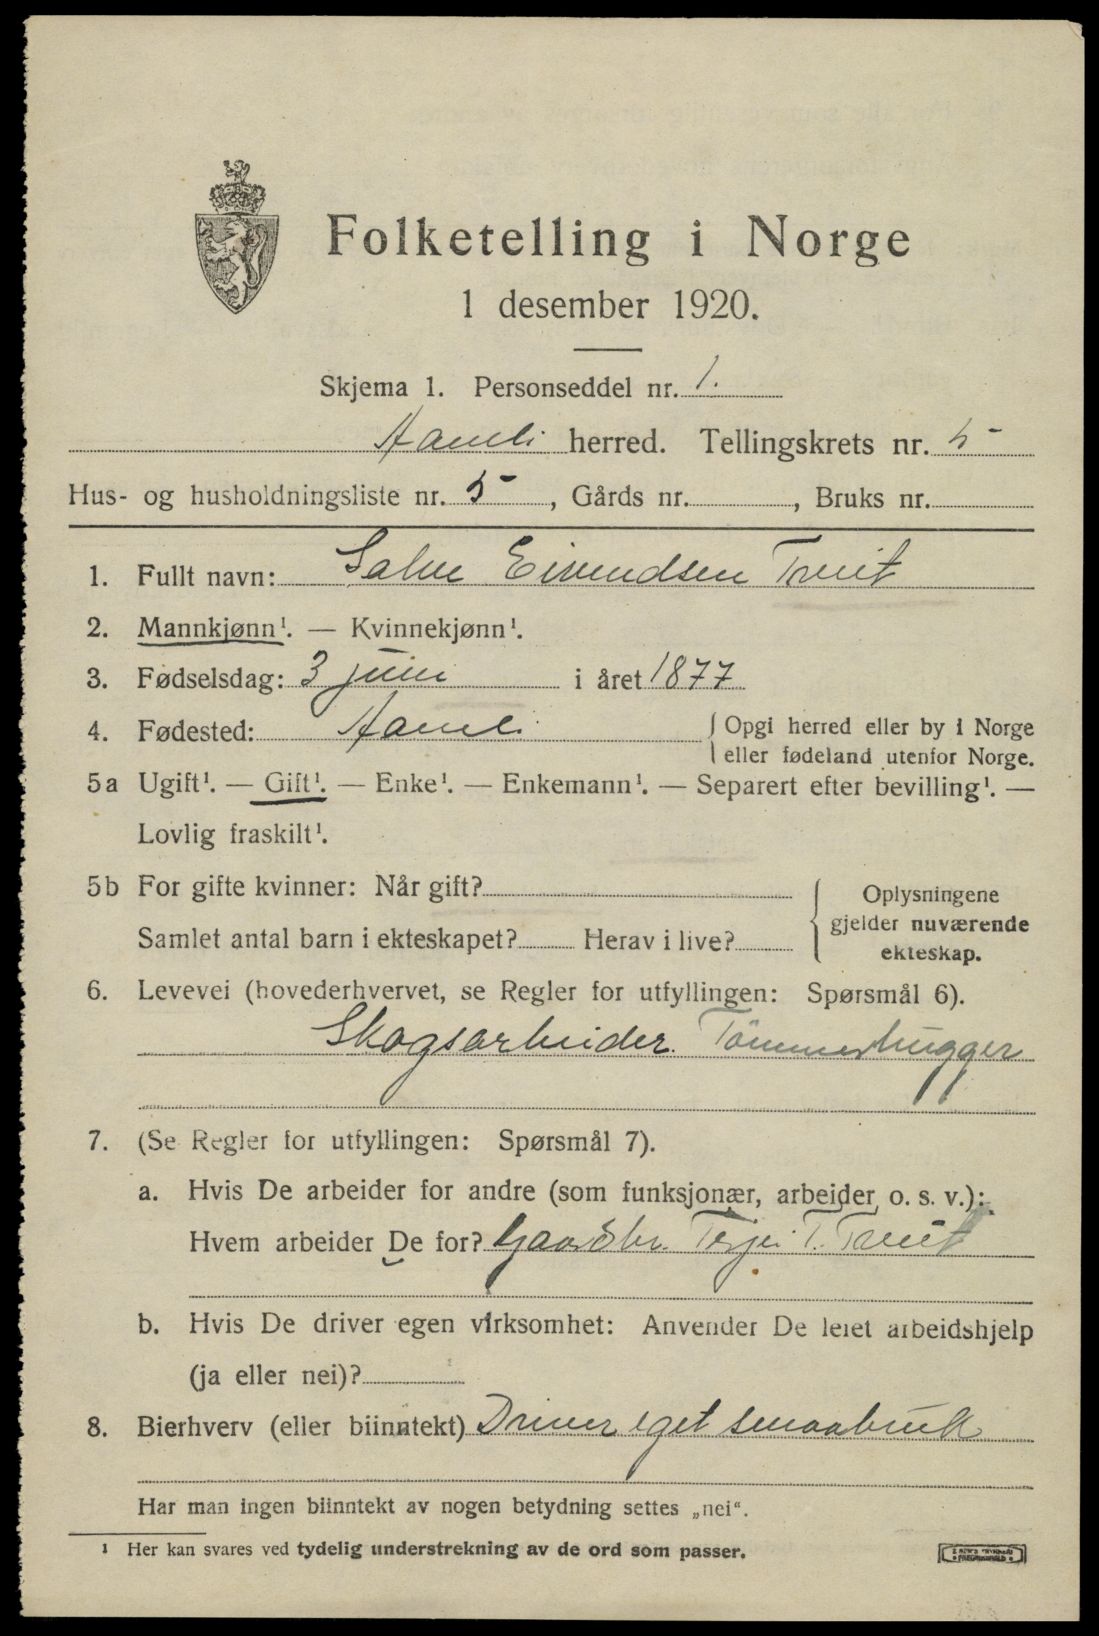 Folketelling i Norge
1 desember 1920.
Skjema 1. Personseddel nr. 1.
Aamli herred. Tellingskrets nr. 5
Hus- og husholdningsliste nr. 5, Gårds nr. , Bruks nr.
1. Fullt navn: Salve Eivendsen Tveit
2. Mannkjønn¹. — Kvinnekjønn¹.
3. Fødselsdag: 3 juni i året 1877
4. Fødested: Aamli { Opgi herred eller by i Norge
eller fødeland utenfor Norge.
5a Ugift¹. — Gift¹. — Enke¹. — Enkemann¹. — Separert efter bevilling¹. —
Lovlig fraskilt¹.
5b For gifte kvinner: Når gift?
Samlet antal barn i ekteskapet? Herav i live?
{ Oplysningene
gjelder nuværende
ekteskap.
6. Levevei (hovederhvervet, se Regler for utfyllingen: Spørsmål 6).
Skogsarbeider. Tömmerhugger
7. (Se Regler for utfyllingen: Spørsmål 7).
a. Hvis De arbeider for andre (som funksjonær, arbeider o. s. v.):
Hvem arbeider De for? Gaardbr. Terjei T. Tveit
b. Hvis De driver egen virksomhet: Anvender De leiet arbeidshjelp
(ja eller nei)?
8. Bierhverv (eller biinntekt) Driver eget smaabruk
Har man ingen biinntekt av nogen betydning settes „nei“.
¹ Her kan svares ved tydelig understrekning av de ord som passer.